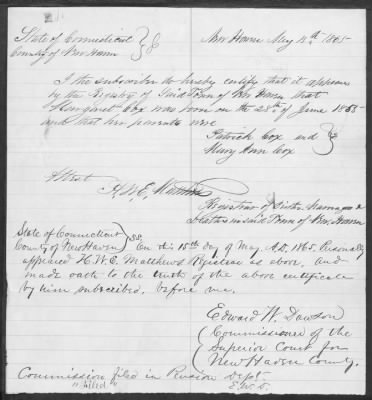 State of Connecticut } ss
County of New Haven
New Haven May 15th 1865
I the subscriber do hereby certify that it appears
by the Registry of said Town of New Haven that
Margaret Cox was born on the 25th of June 1855
and that her parents were
Patrick Cox and }
Mary Ann Cox
Attest
H.W.E. Matthews
Registrar of Births Marriages &
Deaths in said Town of New Haven
State of Connecticut
County of New Haven } ss. On this 15th day of May A.D. 1865, Personally
appeared H.W.E. Matthews Registrar as above, and
made oath to the truth of the above certificate
by him subscribed, before me.
Edward W. Dawson
Commissioner of the
Superior Court for
New Haven County.
Commission filed in Pension Dept.
"filed" E.W.D.